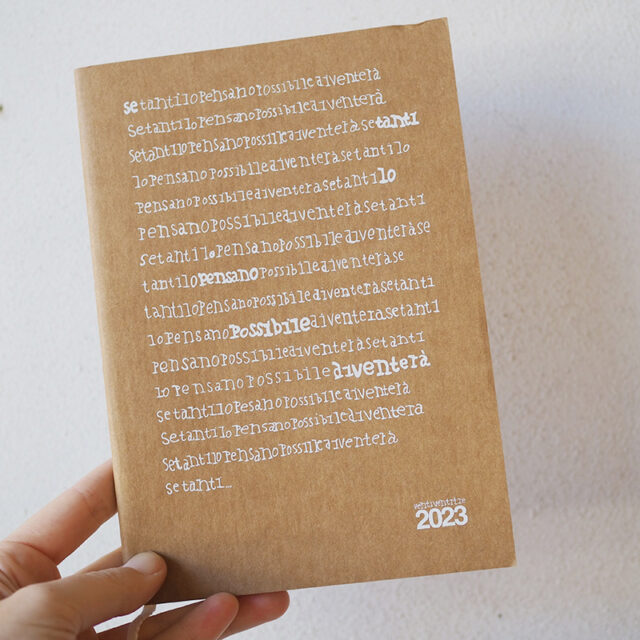 setantilopensanopossibilediventerà
Setantilopensanopossibilediventerà
setantilopensanopossiilediventeràsetanti
lopensanopossibilediventeràsetantilo
pensanopossibilediventeràsetantilo
pensanopossibilediventeràsetanti
setantilopensanopossibilediventeràse
tantilopensanopossibilediventeràse
tantilopensanopossibilediventeràsetanti
lopensanopossibilediventeràsetanti
pensanopossibilediventeràsetanti
lo pensano possibile diventerà
setantilopesanopossibilediventerà
setantilopensanopossibilediventerà
setantilopensanopossiilediventerà
se tanti...
ventiventitre
2023